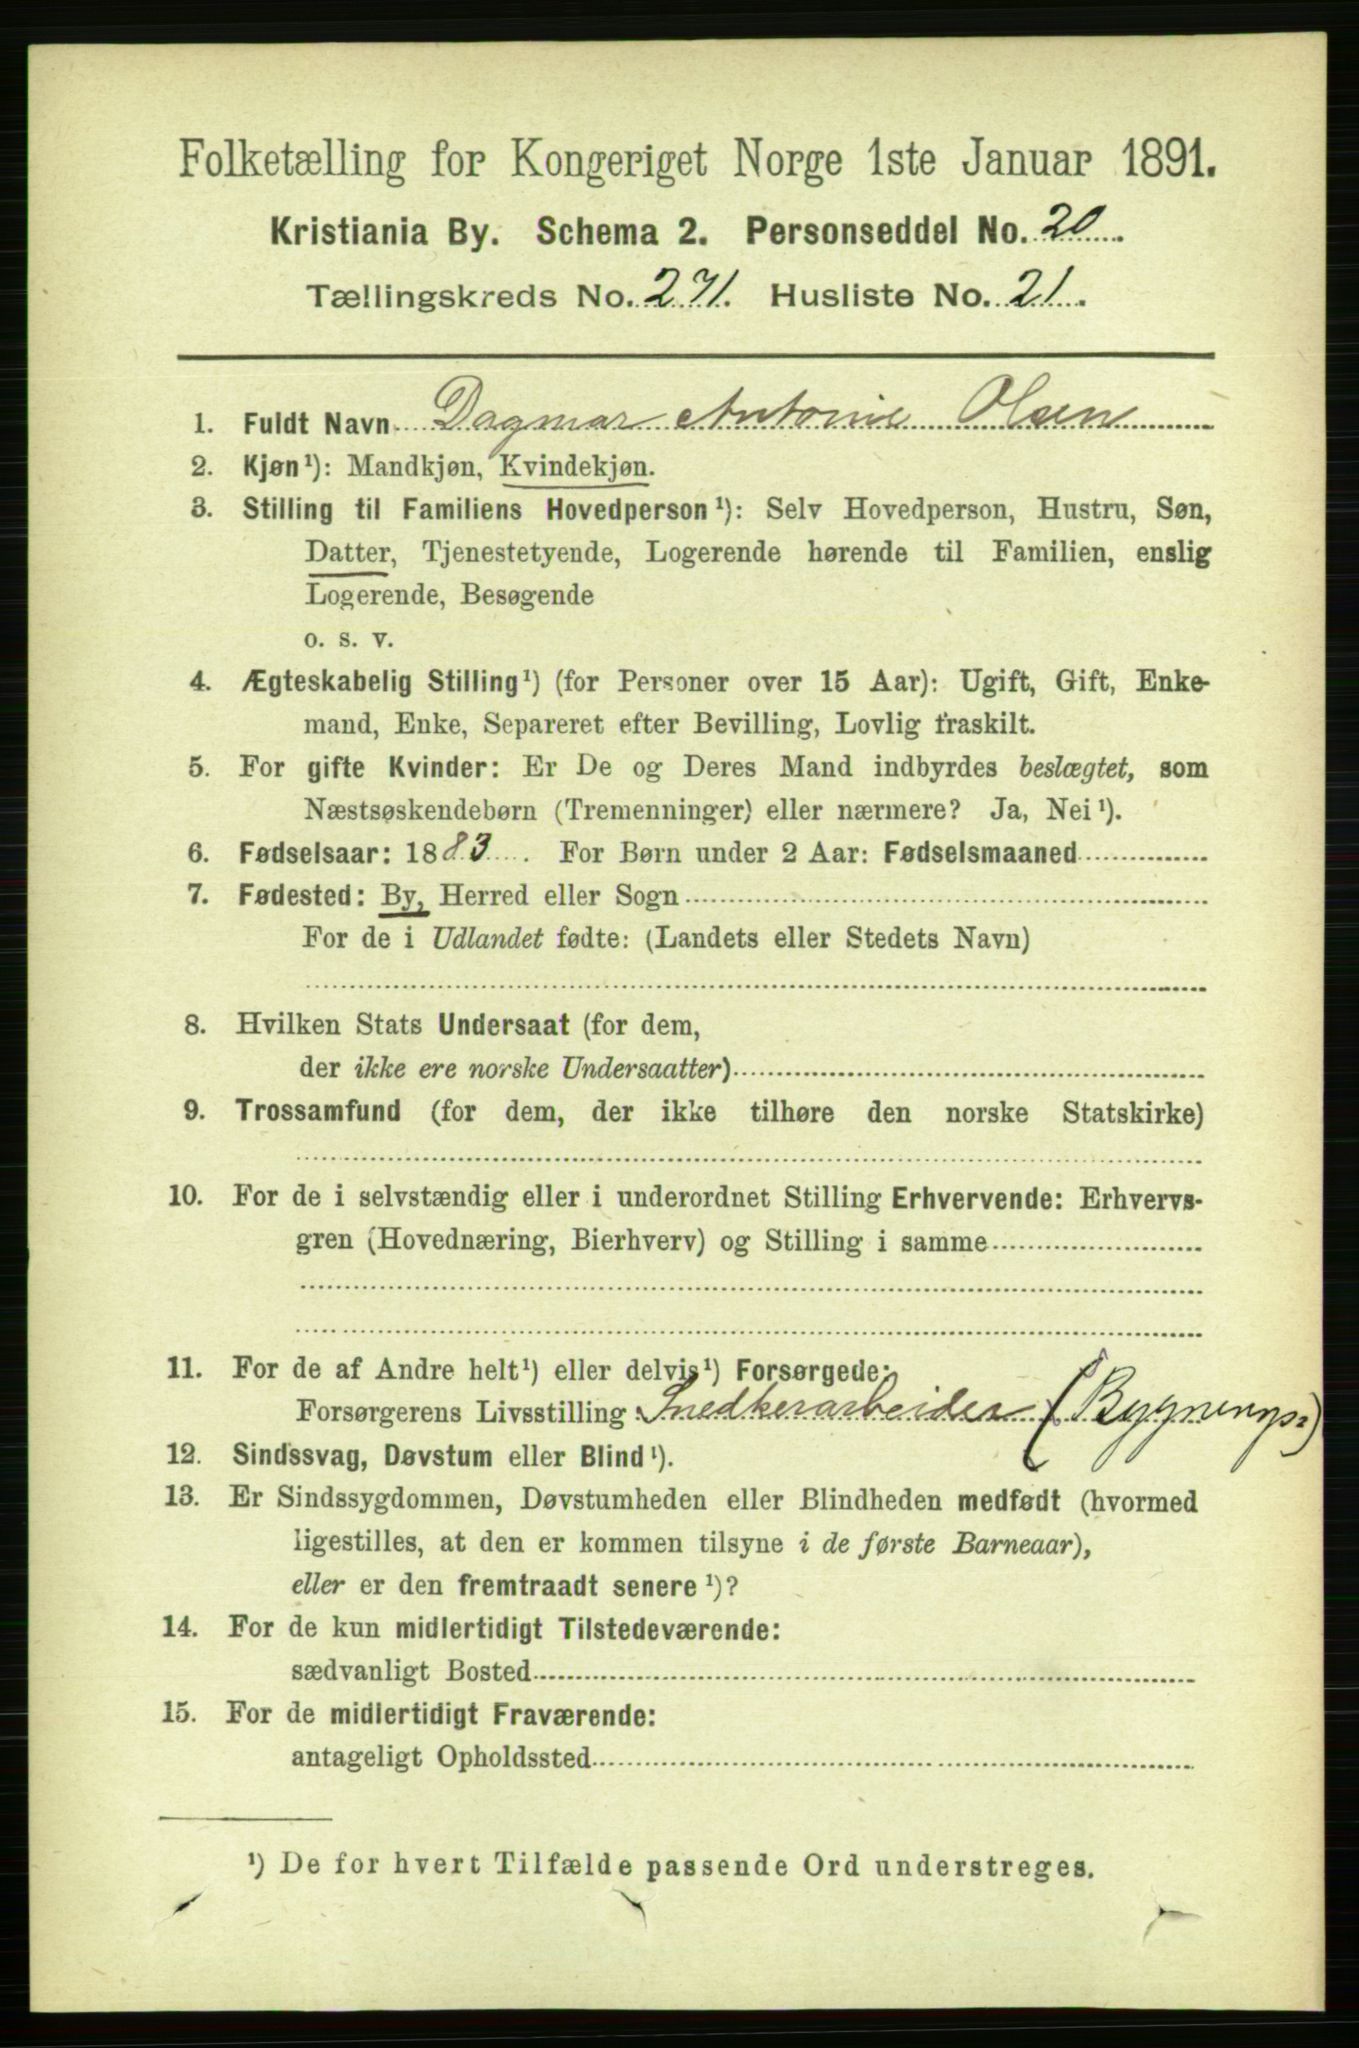 Folketælling for Kongeriget Norge 1ste Januar 1891.
Kristiania By. Schema 2. Personseddel No. 20
Tællingskreds No. 271. Husliste No. 21.
1. Fuldt Navn Dagmar Antonie Olsen
2. Kjøn¹): Mandkjøn, Kvindekjøn.
3. Stilling til Familiens Hovedperson¹): Selv Hovedperson, Hustru, Søn,
Datter, Tjenestetyende, Logerende hørende til Familien, enslig
Logerende, Besøgende
o. s. v.
4. Ægteskabelig Stilling¹) (for Personer over 15 Aar): Ugift, Gift, Enke-
mand, Enke, Separeret efter Bevilling, Lovlig fraskilt.
5. For gifte Kvinder: Er De og Deres Mand indbyrdes beslægtet, som
Næstsøskendebørn (Tremenninger) eller nærmere? Ja, Nei¹).
6. Fødselsaar: 1883. For Børn under 2 Aar: Fødselsmaaned
7. Fødested: By, Herred eller Sogn
For de i Udlandet fødte: (Landets eller Stedets Navn)
8. Hvilken Stats Undersaat (for dem,
der ikke ere norske Undersaatter)
9. Trossamfund (for dem, der ikke tilhøre den norske Statskirke)
10. For de i selvstændig eller i underordnet Stilling Erhvervende: Erhvervs-
gren (Hovednæring, Bierhverv) og Stilling i samme
11. For de af Andre helt¹) eller delvis¹) Forsørgede:
Forsørgerens Livsstilling: Snedkerarbeider (Bygnings=)
12. Sindssvag, Døvstum eller Blind¹).
13. Er Sindssygdommen, Døvstumheden eller Blindheden medfødt (hvormed
ligestilles, at den er kommen tilsyne i de første Barneaar),
eller er den fremtraadt senere¹)?
14. For de kun midlertidigt Tilstedeværende:
sædvanligt Bosted
15. For de midlertidigt Fraværende:
antageligt Opholdssted
¹) De for hvert Tilfælde passende Ord understreges.